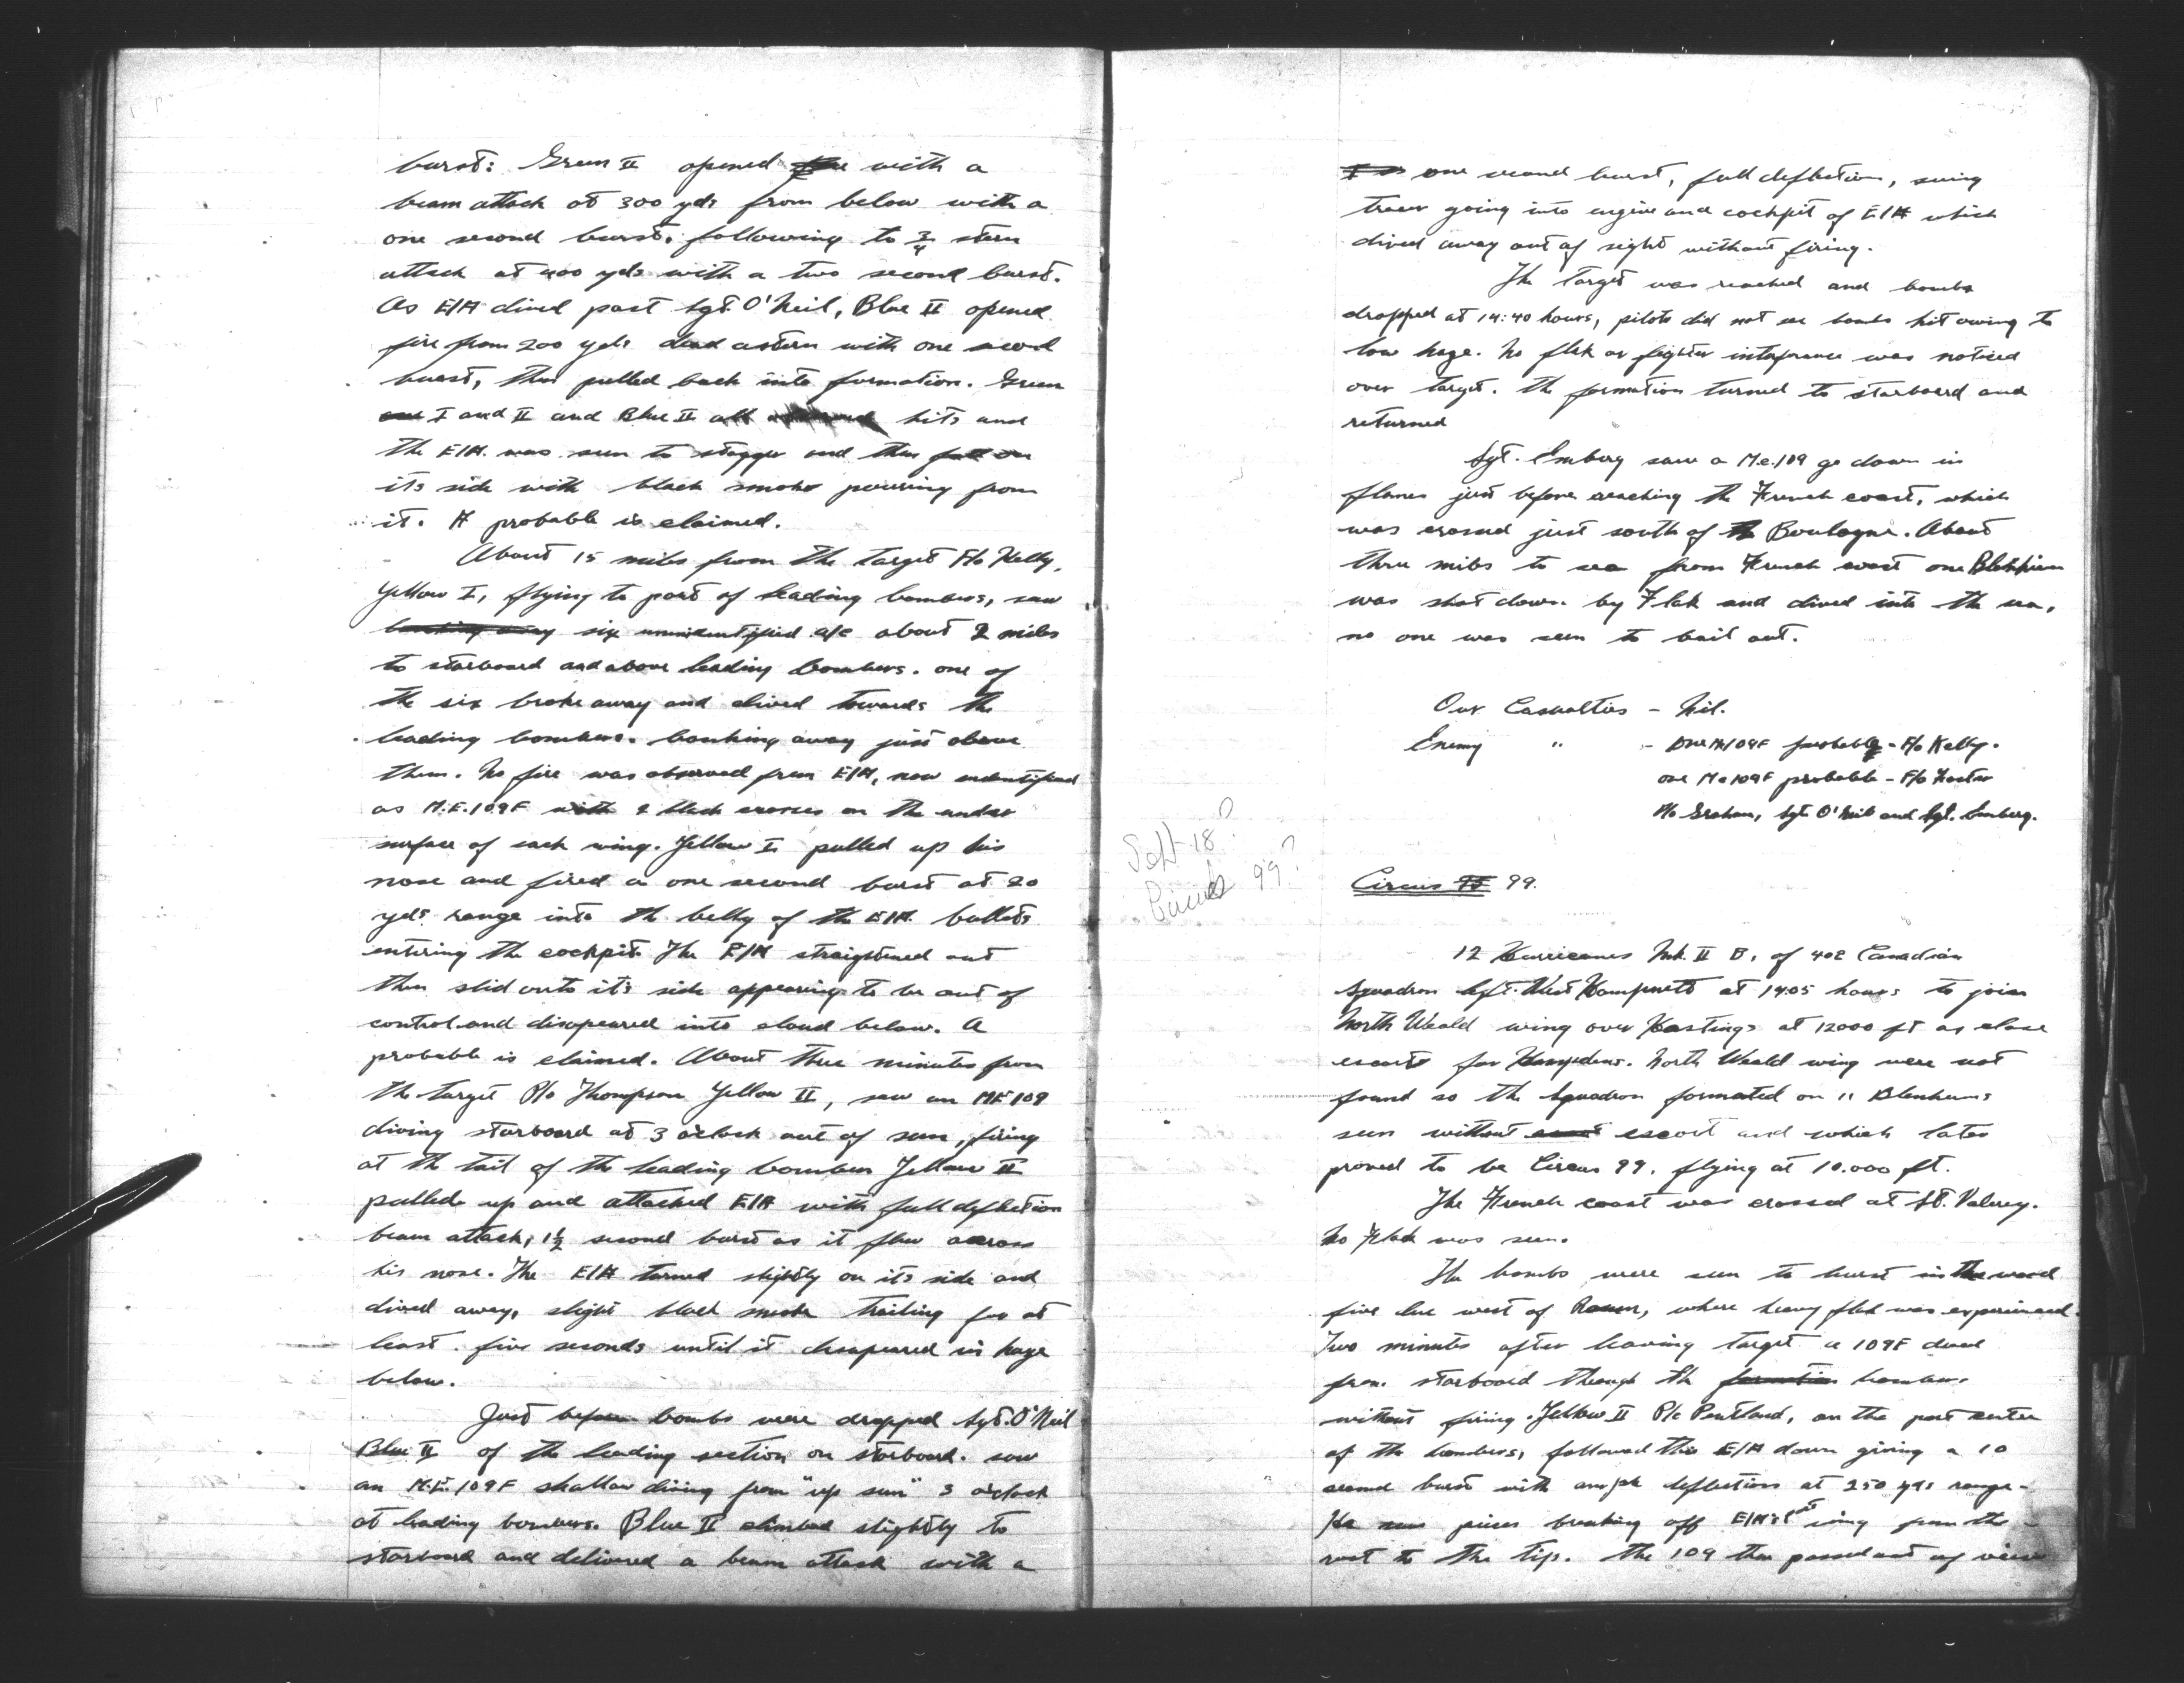 burst: Green II opened fire with a
beam attack at 300 yds from below with a
one second burst, following to 3/4 stern
attack at 400 yds with a two second burst.
As E/A dived past Sgt. O'Neil, Blue II opened
fire from 200 yds dead astern with one second
burst, then pulled back into formation. Green
I and II and Blue II all hits and
the E/A. was seen to stagger and then fall on
its side with black smoke pouring from
it. A probable is claimed.
About 15 miles from the target F/o Kelly,
Yellow I, flying to port of leading bombers, saw
banking away six unidentified a/c about 2 miles
to starboard and above leading bombers. one of
the six broke away and dived towards the
leading bombers. banking away just above
them. No fire was observed from E/A, now indentified
as M.E.109F with 2 black crosses on the under
surface of each wing. Yellow I pulled up his
nose and fired a one second burst at 20
yds range into the belly of the E/A. bullets
entering the cockpit. The E/A straightened out
then slid onto it's side appearing to be out of
control and disapeared into cloud below. A
probable is claimed. About three minutes from
the target P/o Thompson Yellow II, saw an ME109
diving starboard at 3 o'clock out of sun, firing
at the tail of the leading bombers Yellow II
pulled up and attacked E/A with full deflection
beam attack, 1½ second burst as it flew across
his nose. The E/A turned slightly on its side and
dived away, slight black smoke trailing for at
least five seconds until it disapeared in haze
below.
Just before bombs were dropped Sgt. O'Neil
Blue II of the leading section on starboard. saw
an M.E.109F shallow diving from "up sun" 3 o'clock
at leading bombers. Blue II climbed slightly to
starboard and delivered a beam attack with a
one second burst, full deflection, seeing
tracer going into engine and cockpit of E/A which
dived away out of sight without firing.
The target was reached and bombs
dropped at 14:40 hours, pilots did not see bombs hit owing to
low haze. No flak or fighter intefrance was noticed
over target. The formation turned to starboard and
returned
Sgt. Emberg saw a M.e.109 go down in
flames just before reaching the French coast, which
was crossed just south of Boulogne. About
three miles to sea from French coast one Blenhiem
was shot down by Flak and dived into the sea,
no one was seen to bail out.
Our Casualties - Nil.
Enemy " - One Me109F probable - F/o Kelly.
one Me109F probable - F/o
P/o Graham, Sgt O'Neil and Sgt. Emberg.
Sept 18?
Circus 99?
Circus 99.
12 Hurricanes Mk. II B, of 402 Canadian
Squadron left West Hampnett at 1405 hours to join
North Weald wing over Hastings at 12000 ft as close
escort for Hampdens. North Weald wing were not
found so the Squadron formated on 11 Blenheims
seen without escort and which later
proved to be Circus 99, flying at 10.000 ft.
The French coast was crossed at St. Valery.
No Flak was seen.
The bombs were seen to burst in the wood
five due west of Rouen, where heavy flak was experienced.
Two minutes after leaving target a 109F dived
from starboard through the formation bombers
without firing. Yellow II P/o Pentland, on the port center
of the bombers, followed this E/A down giving a 10
second burst with ample deflection at 250 yds range.
He saw pieces breaking off E/A's wing from the
root to the tip. The 109 then passed out of view